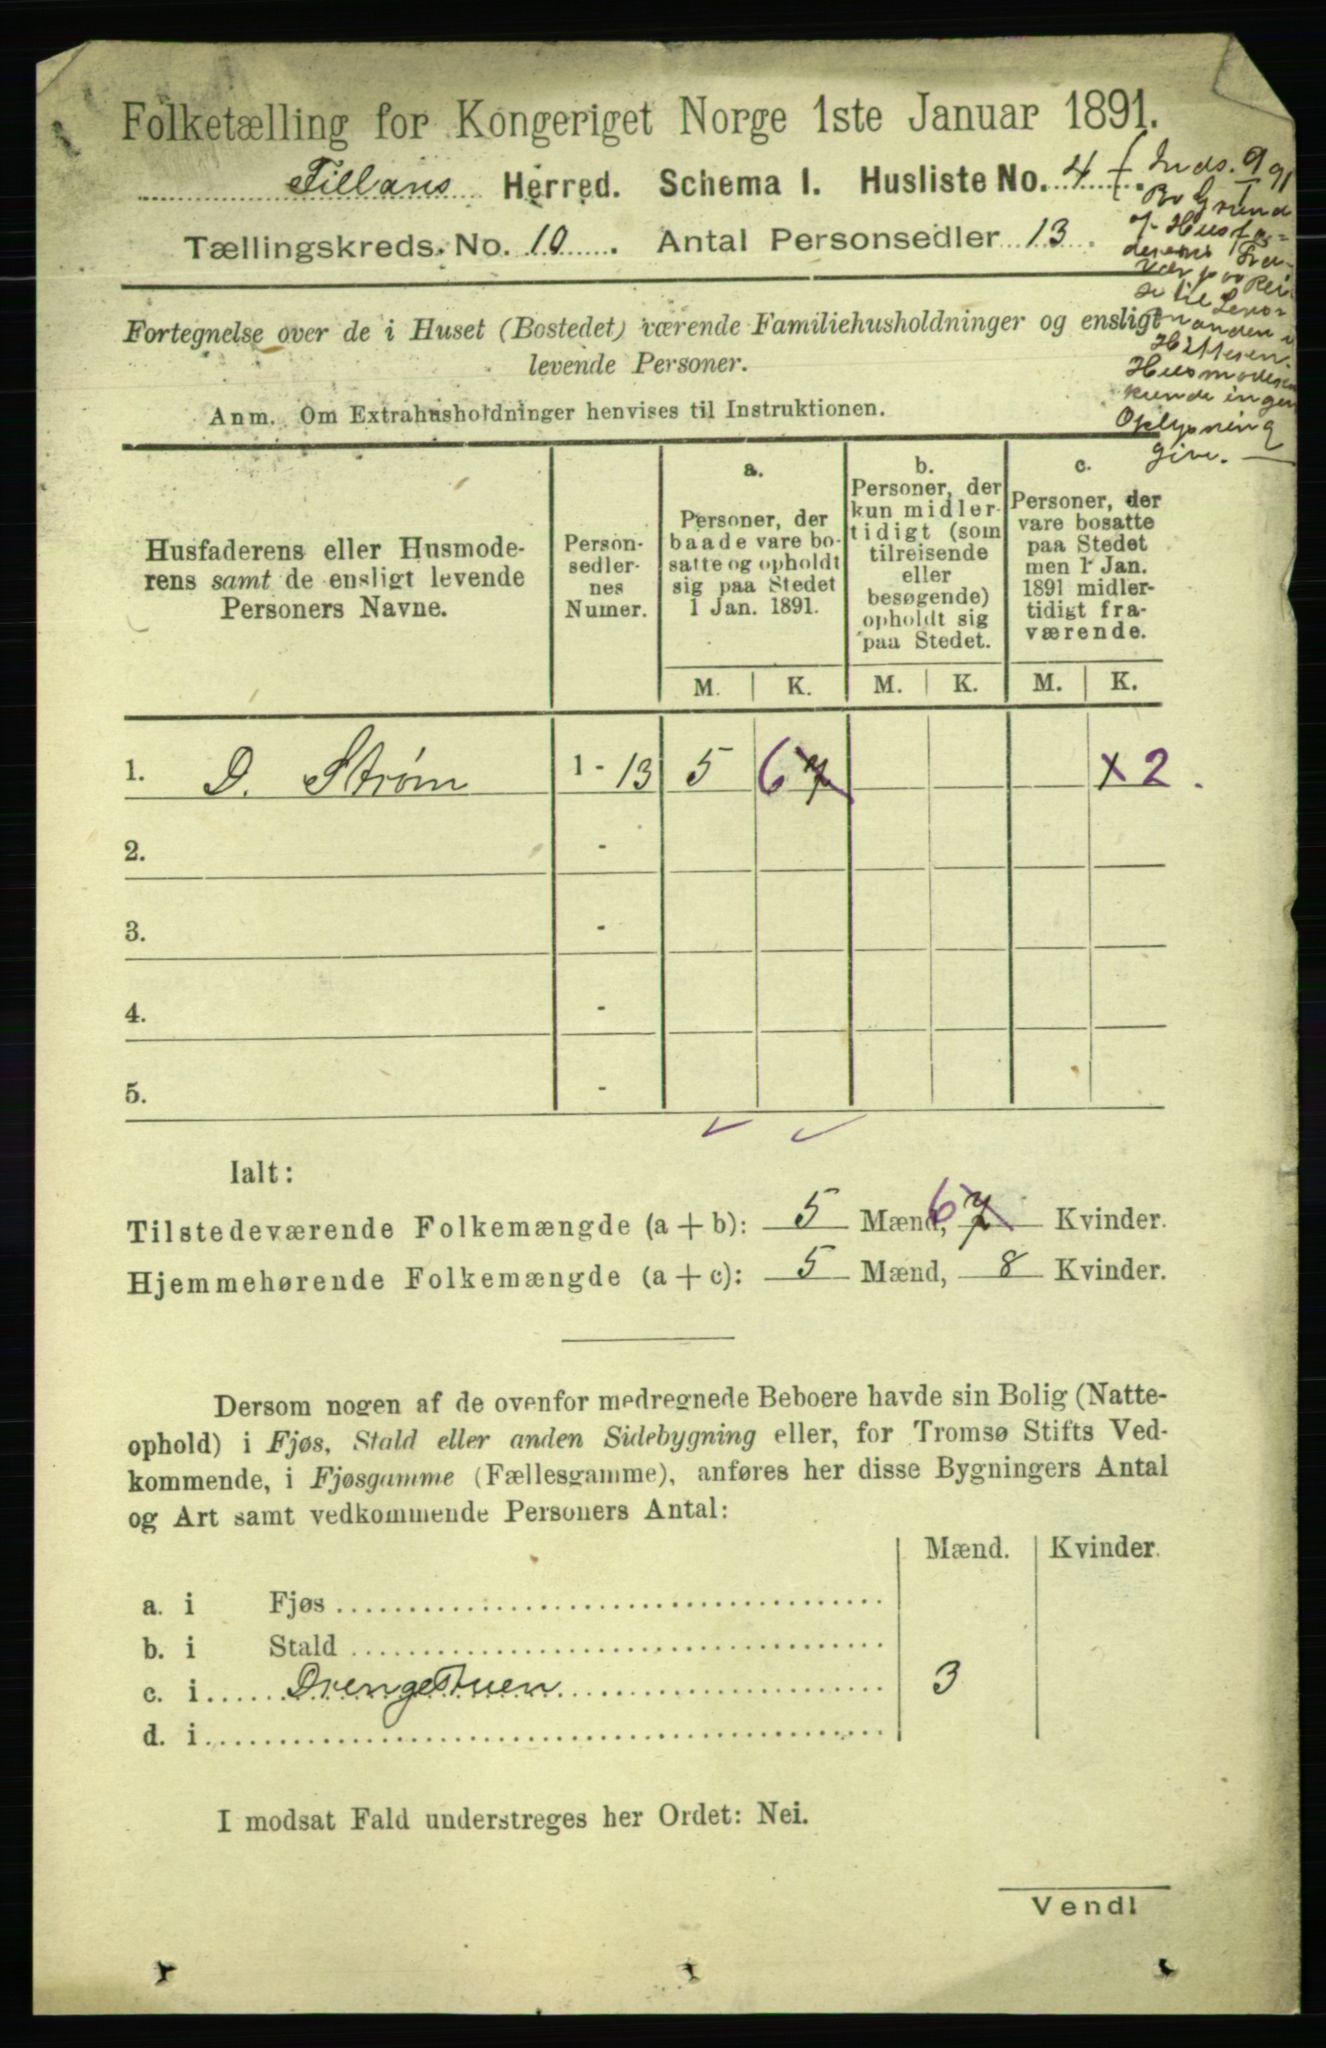 Folketælling for Kongeriget Norge 1ste Januar 1891.
Fillans Herred. Schema I. Husliste No. 4
Tællingskreds. No. 10. Antal Personsedler 13.
Inds. 9/1 91
Grund
af Husfa-
derens Fra-
vær paa Rei-
se til
Hitteren.
Husmoderen
kunde ingen
Oplysning
give. —
Fortegnelse over de i Huset (Bostedet) værende Familiehusholdninger og ensligt
levende Personer.
Anm. Om Extrahusholdninger henvises til Instruktionen.
Husfaderens eller Husmode-
rens samt de ensligt levende
Personers Navne.
Person-
sedler-
nes
Numer.
a.
Personer, der
baade vare bo-
satte og opholdt
sig paa Stedet
1 Jan. 1891.
b.
Personer, der
kun midler-
tidigt (som
tilreisende
eller
besøgende)
opholdt sig
paa Stedet.
c.
Personer, der
vare bosatte
paa Stedet
men 1 Jan.
1891 midler-
tidigt fra-
værende.
M. K. M. K. M. K.
1. D. Strøm 1 - 13 5 6 7 x 2.
2. -
3. -
4. -
5. -
Ialt:
Tilstedeværende Folkemængde (a + b): 5 Mænd, 6 7 Kvinder.
Hjemmehørende Folkemængde (a + c): 5 Mænd, 8 Kvinder.
Dersom nogen af de ovenfor medregnede Beboere havde sin Bolig (Natte-
ophold) i Fjøs, Stald eller anden Sidebygning eller, for Tromsø Stifts Ved-
kommende, i Fjøsgamme (Fællesgamme), anføres her disse Bygningers Antal
og Art samt vedkommende Personers Antal:
Mænd. Kvinder.
a. i Fjøs
b. i Stald
c. i Drengestuen 3
d. i
I modsat Fald understreges her Ordet: Nei.
Vend!